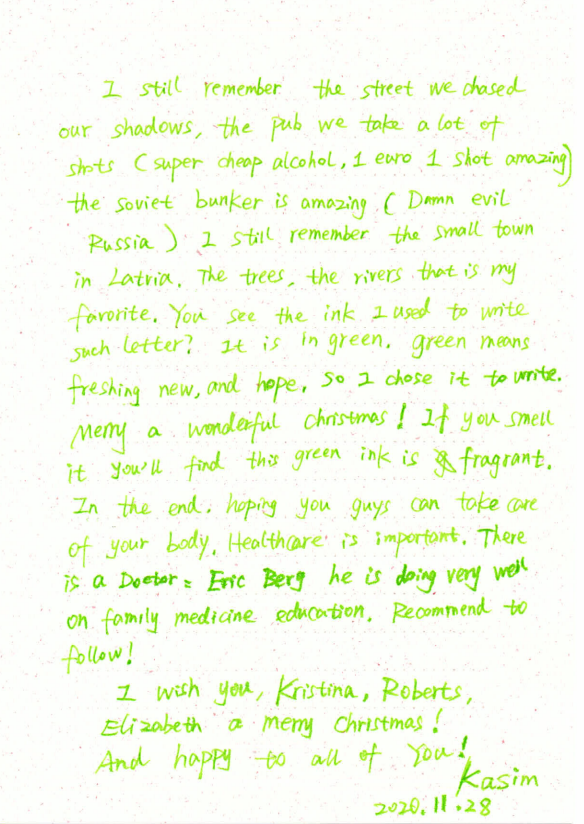 I still remember the street we chased
our shadows, the pub we take a lot of
shots (super cheap alcohol, 1 euro 1 shot amazing)
the soviet bunker is amazing (Damn evil
Russia) I still remember the small town
in Latvia. The trees, the rivers that is my
favorite. You see the ink I used to write
such letter? It is in green. green means
freshing new, and hope, so I chose it to write.
Merry a wonderful christmas! If you smell
it you'll find this green ink is fragrant.
In the end. hoping you guys can take care
of your body. Healthcare is important. There
is a Doctor = Eric Berg he is doing very well
on family medicine education. Recommend to
follow!
I wish you, Kristina, Roberts,
Elizabeth a merry christmas!
And happy to all of You!
Kasim
2020.11.28